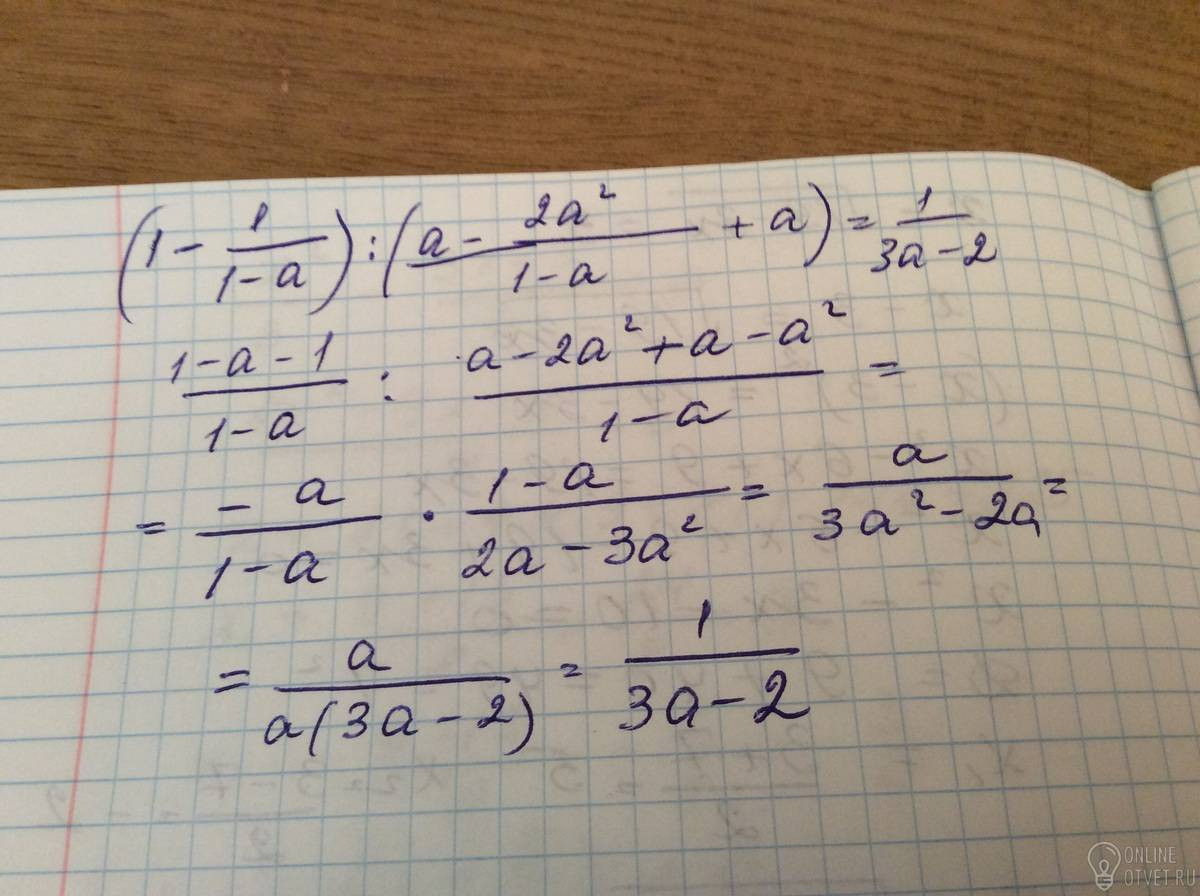 (1 - 1/(1-a)) : ((a - 2a²)/(1-a) + a) = 1/(3a-2)
(1-a-1)/(1-a) : (a-2a²+a-a²)/(1-a) =
= (-a)/(1-a) · (1-a)/(2a-3a²) = a/(3a²-2a) =
= a/(a(3a-2)) = 1/(3a-2)
ONLINE
OTVET.RU